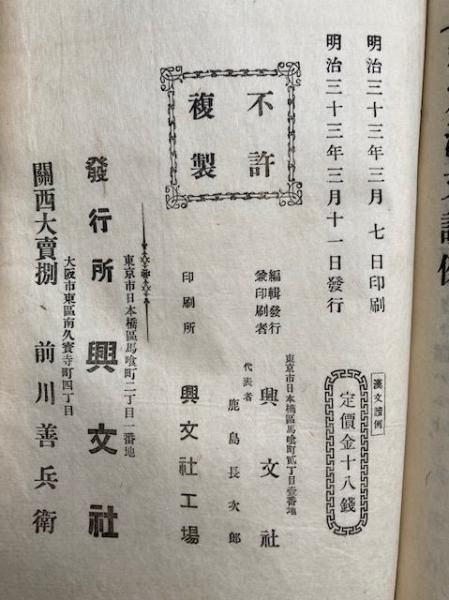 明治三十三年三月七日印刷
明治三十三年三月十一日發行
漢文讀例
定價金十八錢
不許
複製
編輯發行
兼印刷者
東京市日本橋區馬喰町貳丁目壹番地
興文社
代表者
鹿島長次郎
印刷所
興文社工場
東京市日本橋區馬喰町二丁目一番地
發行所
興文社
大阪市東區南久寳寺町四丁目
關西大賣捌、前川善兵衛